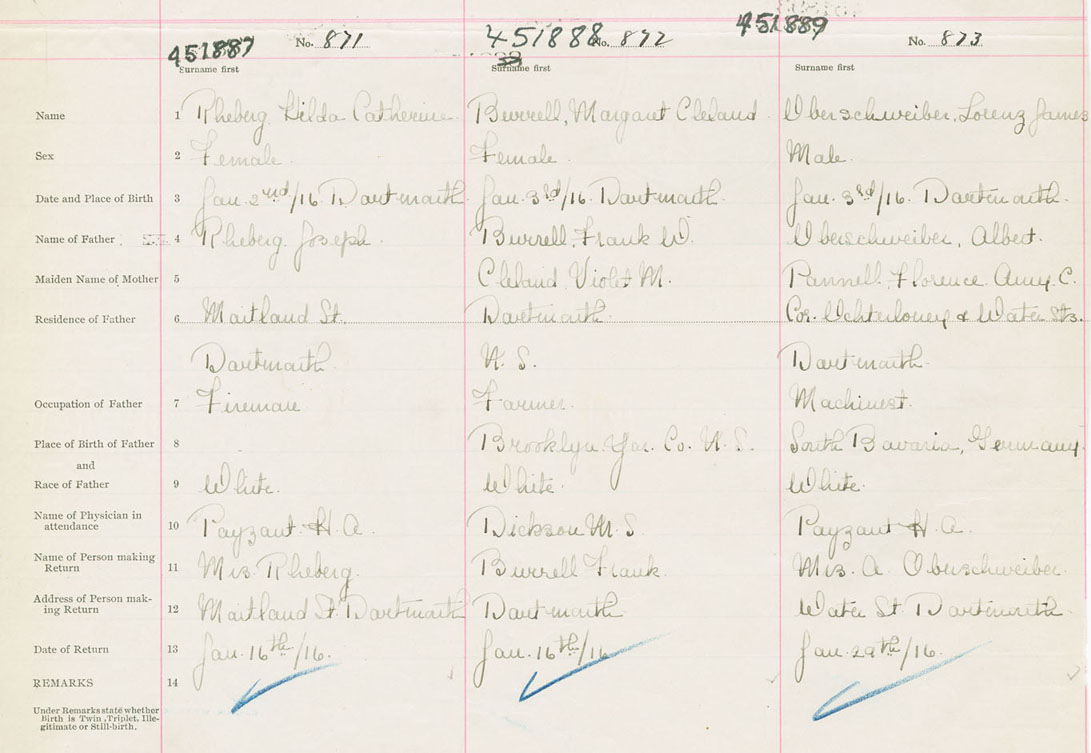 451887 No. 871 451888 No. 872 451889 No. 873
Surname first Surname first Surname first
Name 1 Rheberg Hilda Catherine Burrell, Margaret Cleland Oberschweiber, Lorenz James
Sex 2 Female. Female. Male.
Date and Place of Birth 3 Jan. 2nd/16 Dartmouth Jan. 3rd/16. Dartmouth. Jan. 3rd/16. Dartmouth.
Name of Father 4 Rheberg Joseph. Burrell, Frank W. Oberschweiber, Albert.
Maiden Name of Mother 5 Cleland, Violet M. Pannell, Florence Amy C.
Residence of Father 6 Maitland St. Dartmouth. Cor. Ochterloney & Water Sts.
Dartmouth. N. S. Dartmouth.
Occupation of Father 7 Fireman Farmer. Machinest.
Place of Birth of Father 8 Brooklyn Yar. Co. N. S. South Bavaria, Germany
and
Race of Father 9 White. White. White.
Name of Physician in
attendance 10 Payzant H. A. Dickson M. S. Payzant H. A.
Name of Person making
Return 11 Mrs. Rheberg. Burrell Frank. Mrs. A. Oberschweiber.
Address of Person mak-
ing Return 12 Maitland St. Dartmouth Dartmouth Water St. Dartmouth
Date of Return 13 Jan. 16th/16. Jan. 16th/16 Jan. 29th/16.
REMARKS 14
Under Remarks state whether
Birth is Twin, Triplet, Ille-
gitimate or Still-birth.